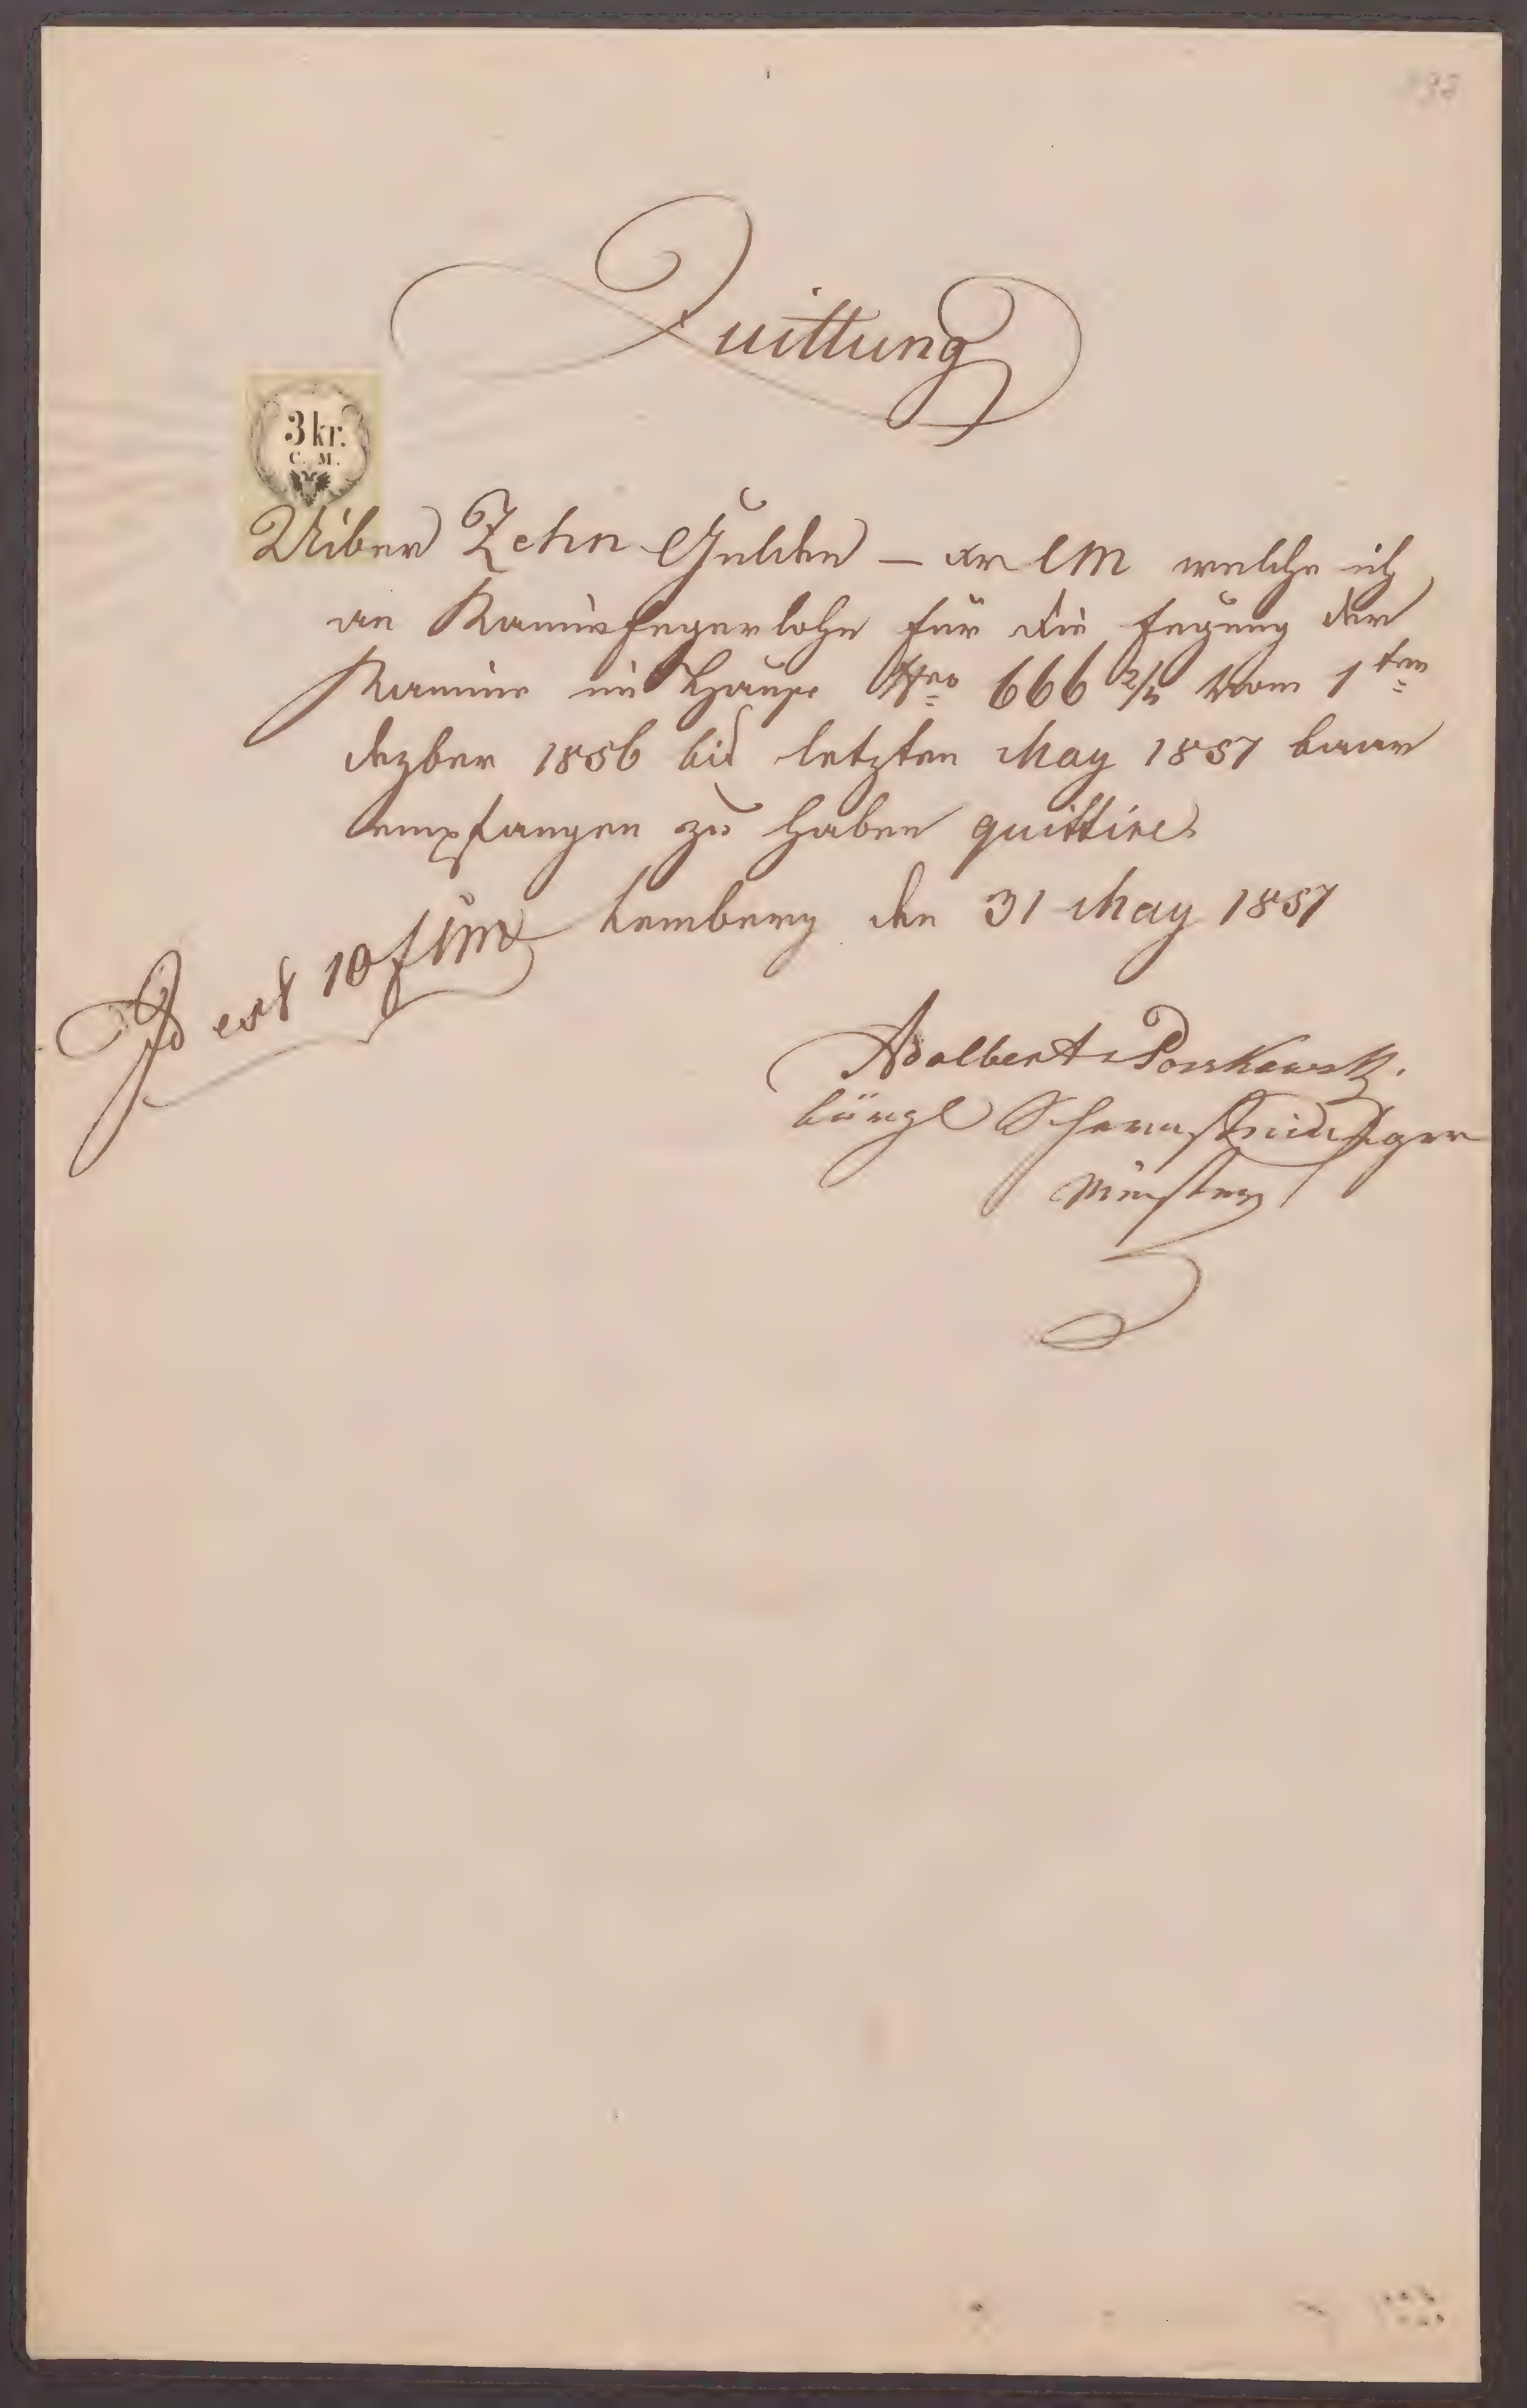 Quittung
3 kr.
C. M.
Uiber Zehn Gulden — xr CM welche ich
an Kaminfegerlohn für die Fegung der
Kamine im Hause Nro 666 2/4 vom 1ten
Dezber 1856 bis letzten May 1857 baar
empfangen zu haben quittire
Lemberg den 31 May 1857
Id est 10 f CM
Adalbert
bürgl
Meister